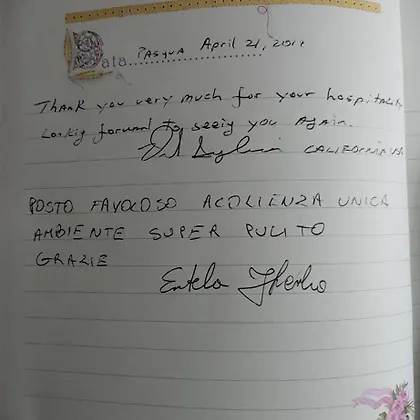 Data.... PASQUA April 21, 2019
Thank you very much for your hospitality
Lookig forward to seeig you Again.
CALIFORNIA USA
POSTO FAVOLOSO ACOLIENZA UNICA
AMBIENTE SUPER PULITO
GRAZIE
Entela